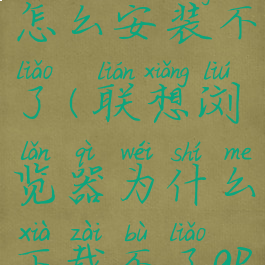 怎么安装不
liǎo lián xiǎng liú
了(联想浏
lǎn qì wéi shí me
览器为什么
xià zài bù liǎo
下载不了OP